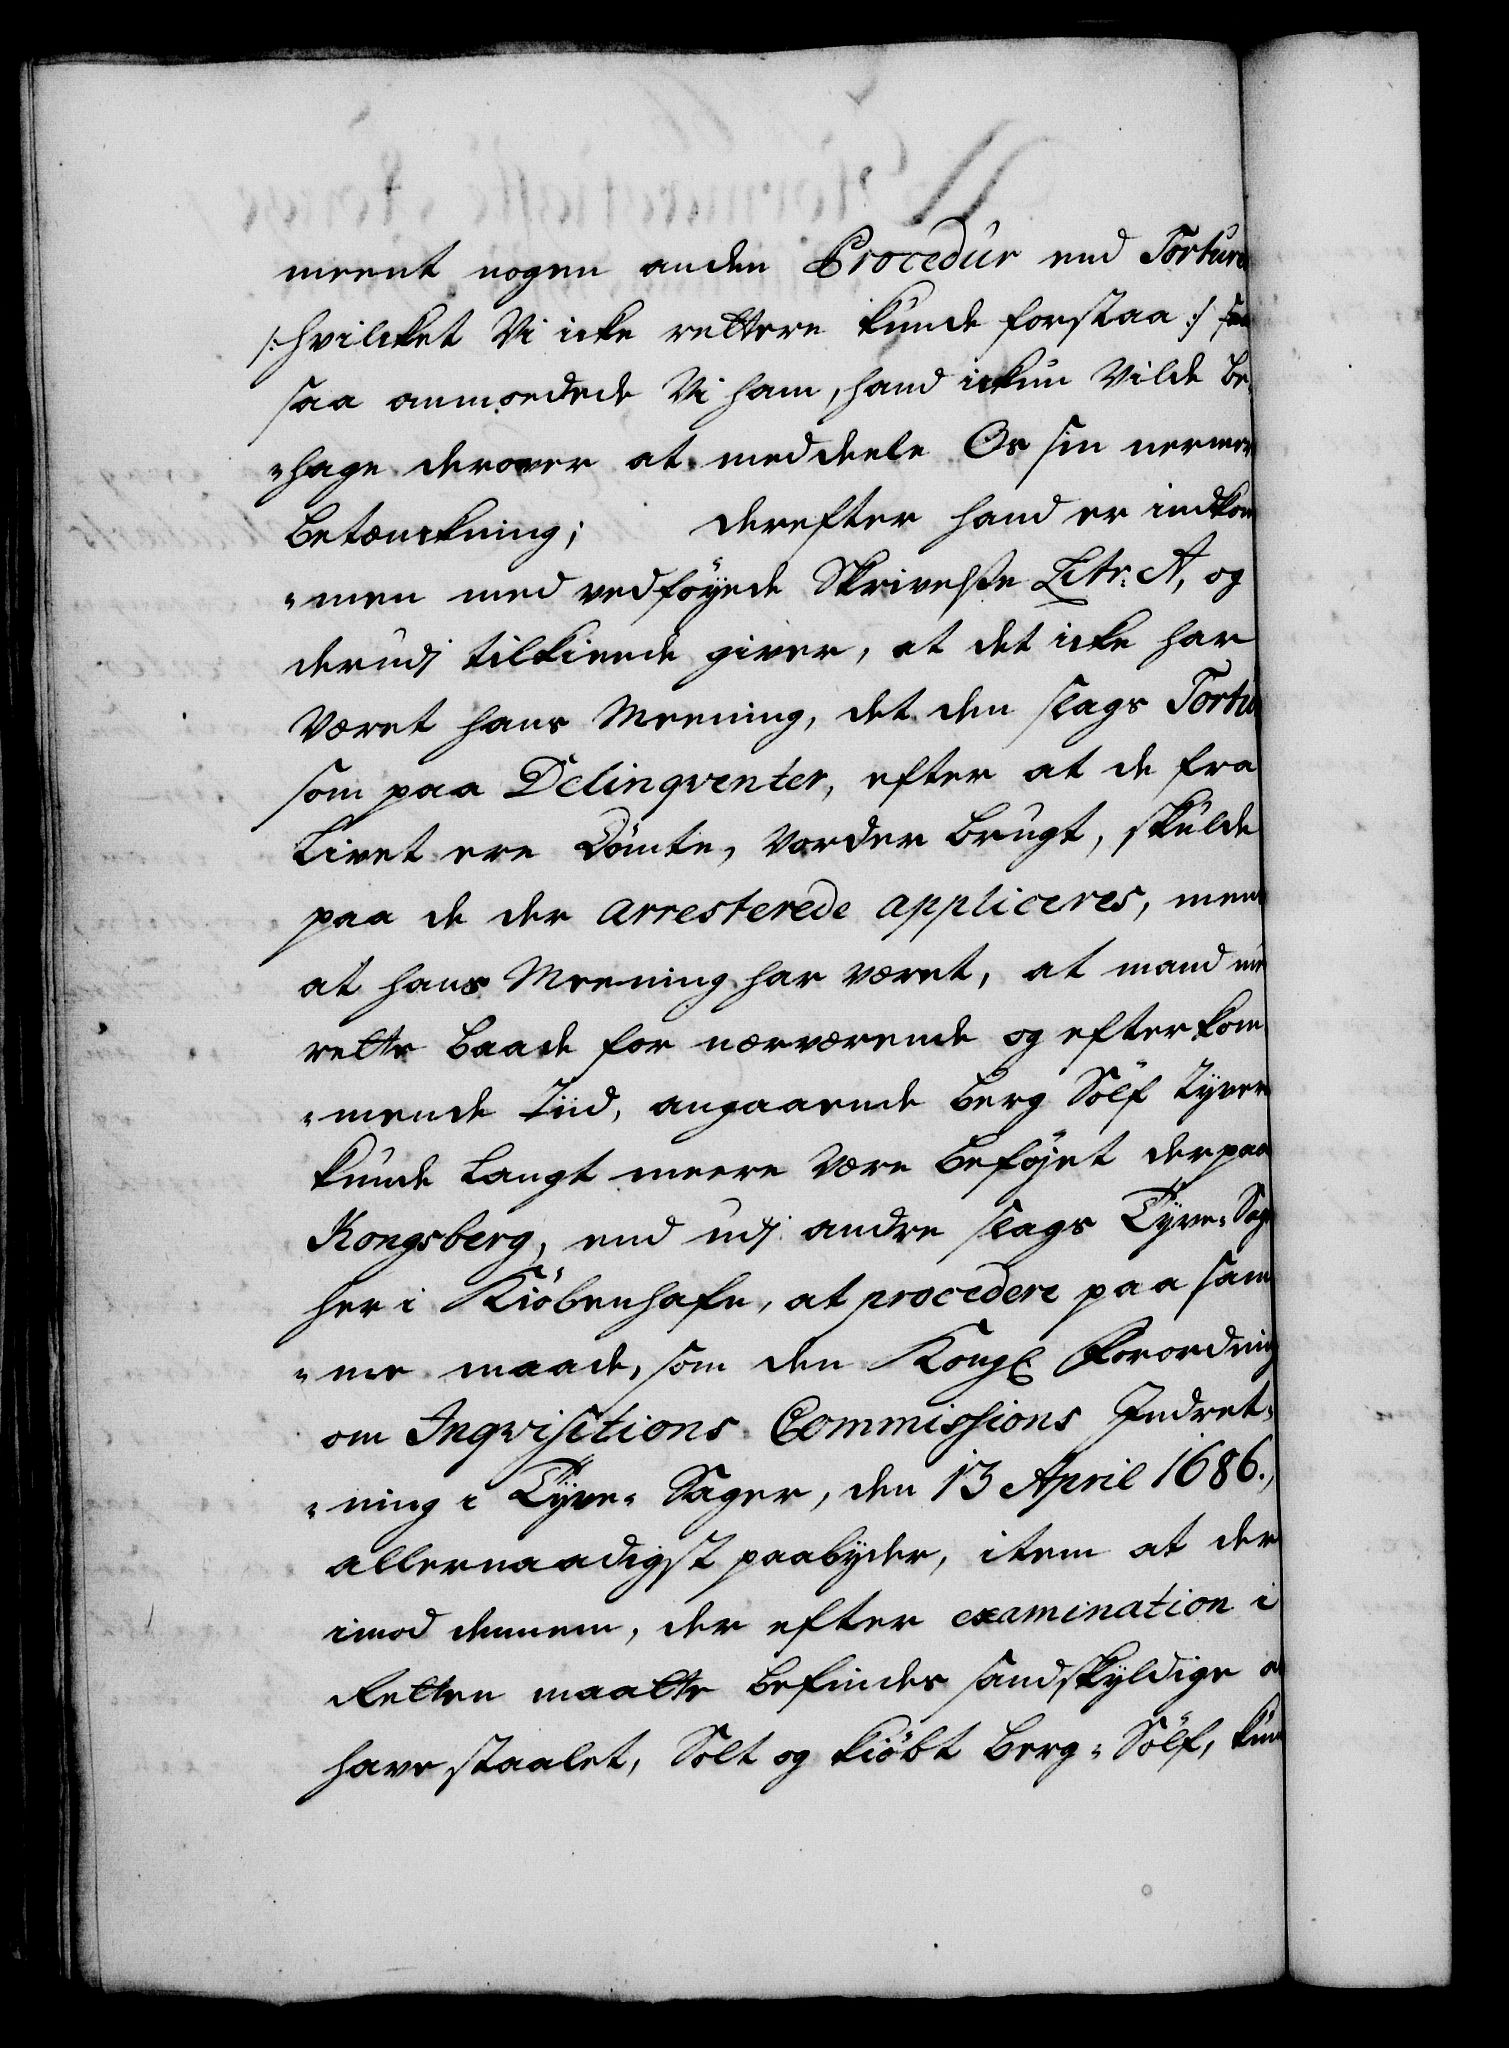 meent nogen anden Procedur end Tortur
/: hvilcket Vi icke rettere kunde forstaa :/
saa anmodede Vi ham, hand ickun vilde be,
"hage derover at meddeele Os sin nermere
Betænckning; derefter hand er indkom
"men med vedføyede Skrivelsse Litr: A, og
derudj tilkiende giver, at det icke har
været hans Meening, det den slags Tortur
som paa Delinqventer, efter at de fra
Livet ere Dömte, vorder brugt, skulde
paa de der arresterede appliceres, men
at hans Meening har været, at mand
rette baade for nærværende og efterkom
"mende Tiid, angaaende berg Sölf Tyver
kunde langt meere være beföyet der paa
Kongsberg, end udj andre slags Tyve-Sag
her i Kiöbenhafn, at procedere paa sam
"me maade, som den Kongl Forordning
om Inqvisitions Commissions Indret-
"ning i Tyve- Sager, den 13 April 1686.,
allernaadigst paabyder, item at der
imod dennem, der efter examination i
Retten maatte befindes sandskyldige
have staalet, Solt og kiöbt Berg- Sölf, kun